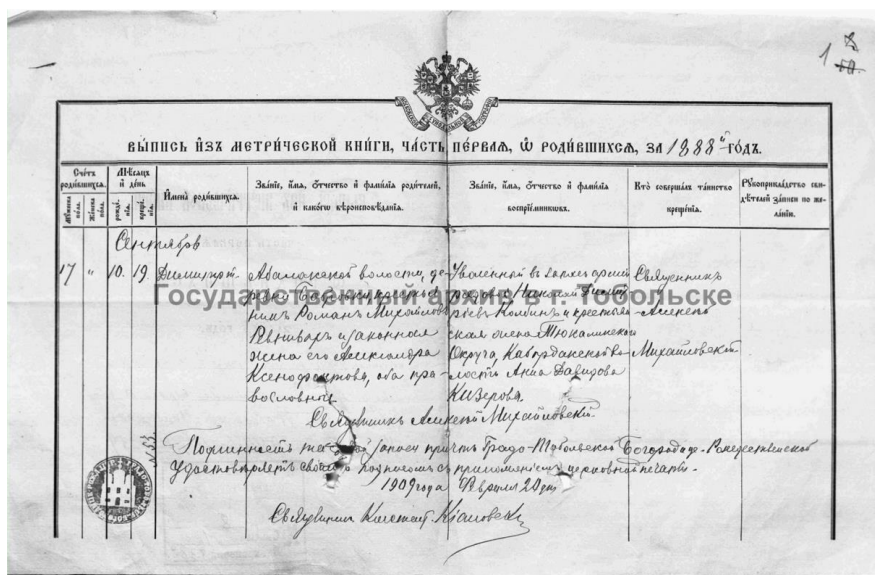 1
ВЫПИСЬ ИЗЪ МЕТРИЧЕСКОЙ КНИГИ, ЧАСТЬ ПЕРВАЯ, Ѿ РОДИВШИХСЯ, ЗА 1888й ГОДЪ.
Счетъ родившихся.
Мужеска пола.
Женска пола.
Мѣсяцъ и день
рожденія.
крещенія.
Имена родившихся.
Званіе, имя, отчество и фамилія родителей, и какогѡ вѣроисповѣданія.
Званіе, имя, отчество и фамилія воспріемниковъ.
Кто совершалъ таинство крещенія.
Рукоприкладство свидѣтелей записи по желанію.
Сентябрь
17 " 10. 19. Димитрій.
Абалакской волости, де-
ревни
никъ Романъ Михайловъ
и законная
жена его Александра
Ксенофонтова, оба пра-
вославные.
Уволенный въ запасъ арміи
рядовой Николай Дмит-
ріевъ Колбинъ и крестьян-
ская жена Тюкалинскаго
Округа, Кабырдакской во-
лости Анна Давидова
Кизерова.
Священникъ
Алексѣй
Михайловскій
Священникъ Алексѣй Михайловскій.
Подлинность записи причтъ Градо-Тобольской Богородице-Рождественской
удостовѣряетъ своею подписью съ приложеніемъ церковной печати.
1909 года Февраля 20 дня
Священникъ
Государственный архив в г. Тобольске